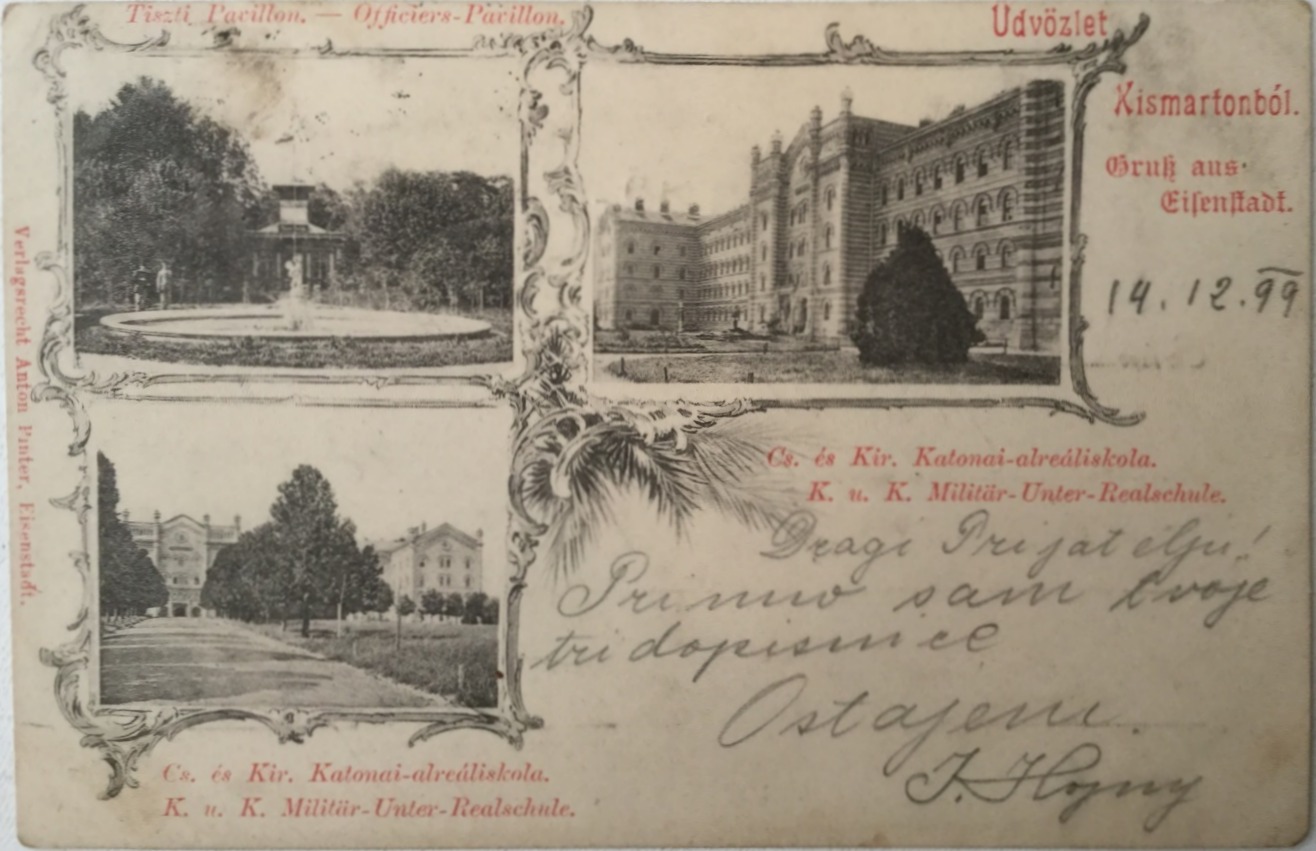 Tiszti Pavillon. — Officiers-Pavillon.
Üdvözlet
Kismartonból.
Gruß aus
Eisenstadt.
14.12.99
Verlagsrecht Anton Pinter, Eisenstadt.
Cs. és Kir. Katonai-alreáliskola.
K. u. K. Militär-Unter-Realschule.
Dragi Prijatelju!
Primio sam tvoje
tri dopisnice
Ostajem
Cs. és Kir. Katonai-alreáliskola.
K. u. K. Militär-Unter-Realschule.